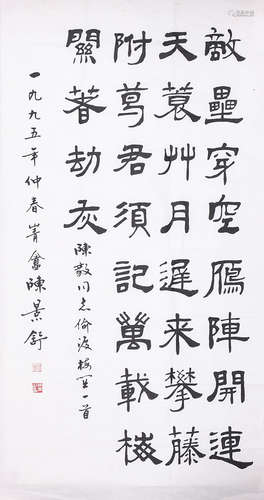 敵壘穿空鴈陣開連
天蓑艸月遲来攀藤
附葛君須記萬載梅
關著劫灰
陳毅同志偷渡梅関一首
一九九五年仲春陳景舒